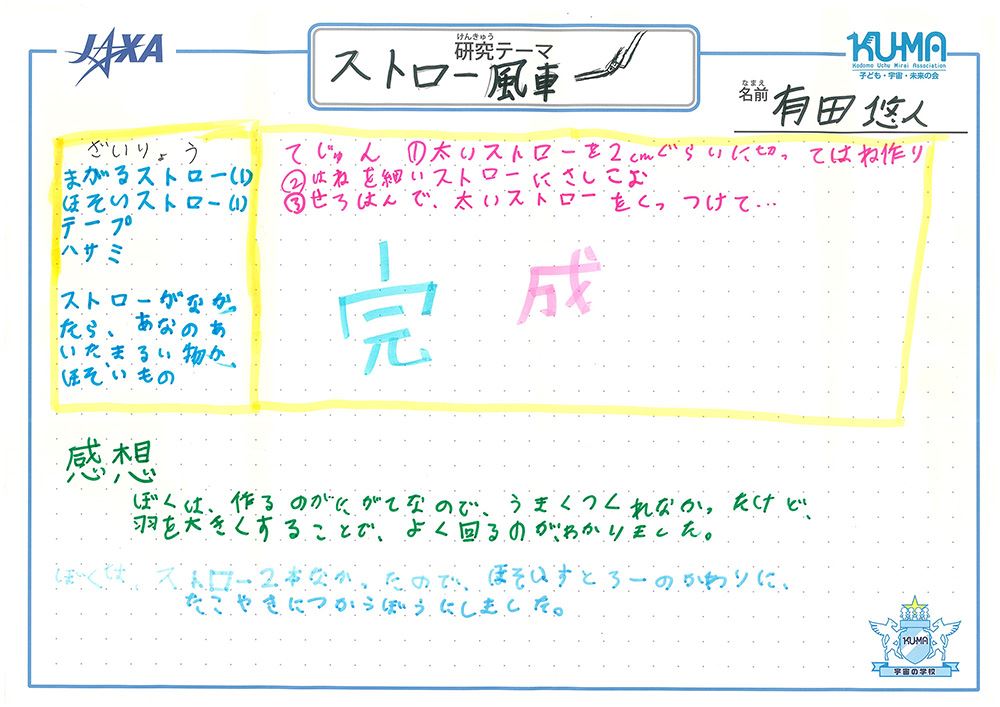 JAXA
けんきゅう
研究テーマ
ストロー風車
KU-MA
Kodomo Uchu Mirai Association
子ども・宇宙・未来の会
なまえ
名前
有田悠人
ざいりょう
まがるストロー(1)
ほそいストロー(1)
テープ
ハサミ
ストローがなかっ
たら、あなのあ
いた、まるい物か、
ほそいもの
てじゅん ①太いストローを2cmぐらいに切ってはね作り
②はねを細いストローにさしこむ
③せろはんで、太いストローをくっつけて…
完成
感想
ぼくは、作るのがにがてなので、うまくつくれなかったけど、
羽を大きくすることで、よく回るのがわかりました。
ぼくは、ストロー2本なかったので、ほそいすとろーのかわりに、
たこやきにつかうぼうにしました。
KU-MA
宇宙の学校